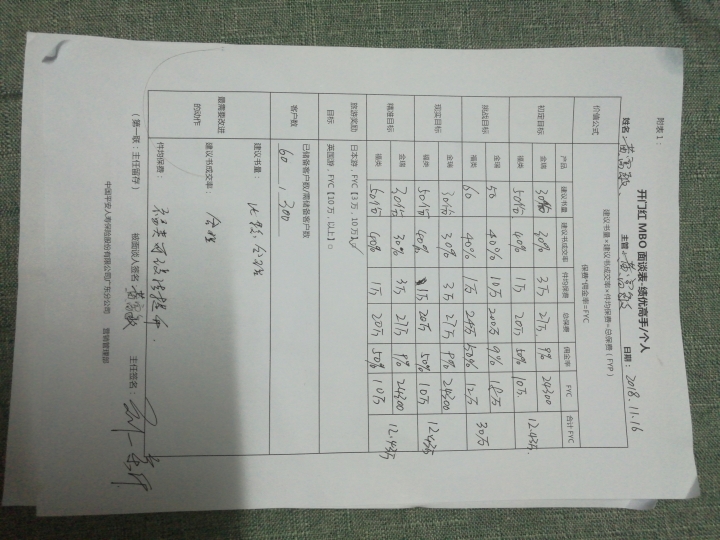 附表1：
开门红 MBO 面谈表-绩优高手/个人
姓名： 主管： 日期：2018.11.16
价值公式 建议书量×建议书成交率×件均保费=总保费（FYP）
保费*佣金率=FYC
产品 建议书量 建议书成交率 件均保费 总保费 佣金率 FYC 合计 FYC
初定目标 金瑞 30份 30% 3万 27万 9% 24300 12.43万
福类 50份 40% 1万 20万 50% 10万
挑战目标 金瑞 50 40% 10万 200万 9% 18万 30万
福类 60 40% 1万 24万 50% 12万
现实目标 金瑞 30份 30% 3万 27万 9% 24300 12.43万
福类 50份 40% 1万 20万 50% 10万
精准目标 金瑞 30份 30% 3万 27万 9% 24300 12.43万
福类 50份 40% 1万 20万 50% 10万
旅游奖励目标 日本游，FYC【3万，10万】☑
英国游，FYC【10万，以上】□
客户数 已储备客户数/需储备客户数
60 / 300
最需要改进的动作 建议书量：
建议书成交率：合理
件均保费：
（第一联：主任留存） 被面谈人签名： 主任签名：
中国平安人寿保险股份有限公司广东分公司 营销管理部